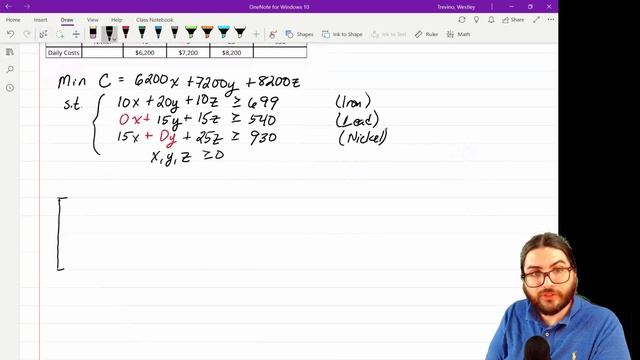 OneNote for Windows 10
Trevino, Westley
Home Insert Draw View Help Class Notebook
Shapes Ink to Shape Ink to Text Math
Daily Costs $6,200 $7,200 $8,200
Min C = 6200x + 7200y + 8200z
s.t 10x + 20y + 10z ≥ 699 (Iron)
0x + 15y + 15z ≥ 540 (Lead)
15x + 0y + 25z ≥ 930 (Nickel)
x, y, z ≥ 0